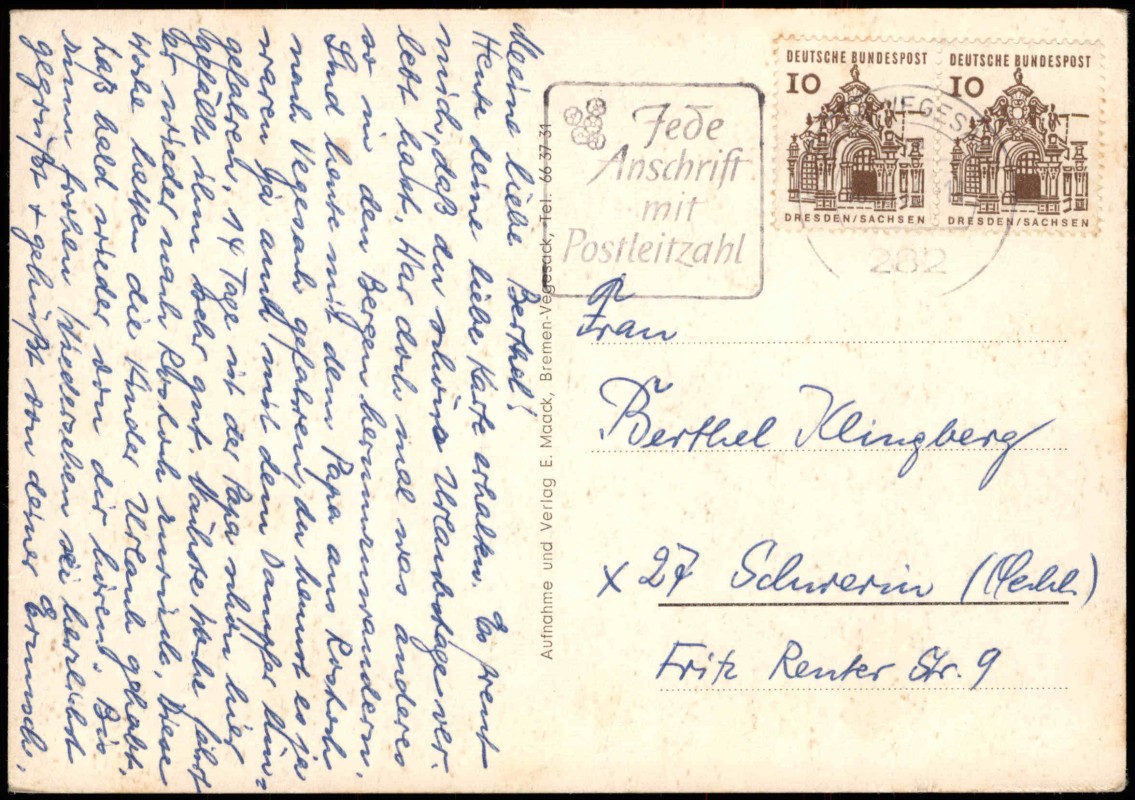 Meine liebe Berthel!
Heute deine liebe Karte erhalten. Es freut
mich, daß du schöne Urlaubstage ver-
lebt hast. War doch mal was anderes
so in den Bergen herumzuwandern.
Sind heute mit dem Papa aus Rostock
nach Vegesack gefahren, du kennst es ja
waren ja auch mit dem Dampfer hin-
gefahren. 14 Tage ist der Papa schon hier
gefällt ihm sehr gut. Nächste Woche fährt
er wieder nach Rostock zurück. Diese
Woche hatten die Kinder Urlaub gehabt.
Laß bald wieder von dir hören. Bis
zum frohen Wiedersehen sei herzlichst
gegrüßt + geküßt von deiner
Aufnahme und Verlag E. Maack, Bremen-Vegesack, Tel. 66 37 31
Jede
Anschrift
mit
Postleitzahl
DEUTSCHE BUNDESPOST
10
DRESDEN/SACHSEN
DEUTSCHE BUNDESPOST
10
DRESDEN/SACHSEN
VEGES
282
Frau
Berthel Klingberg
x 27 Schwerin (Meckl)
Fritz Reuter Str. 9